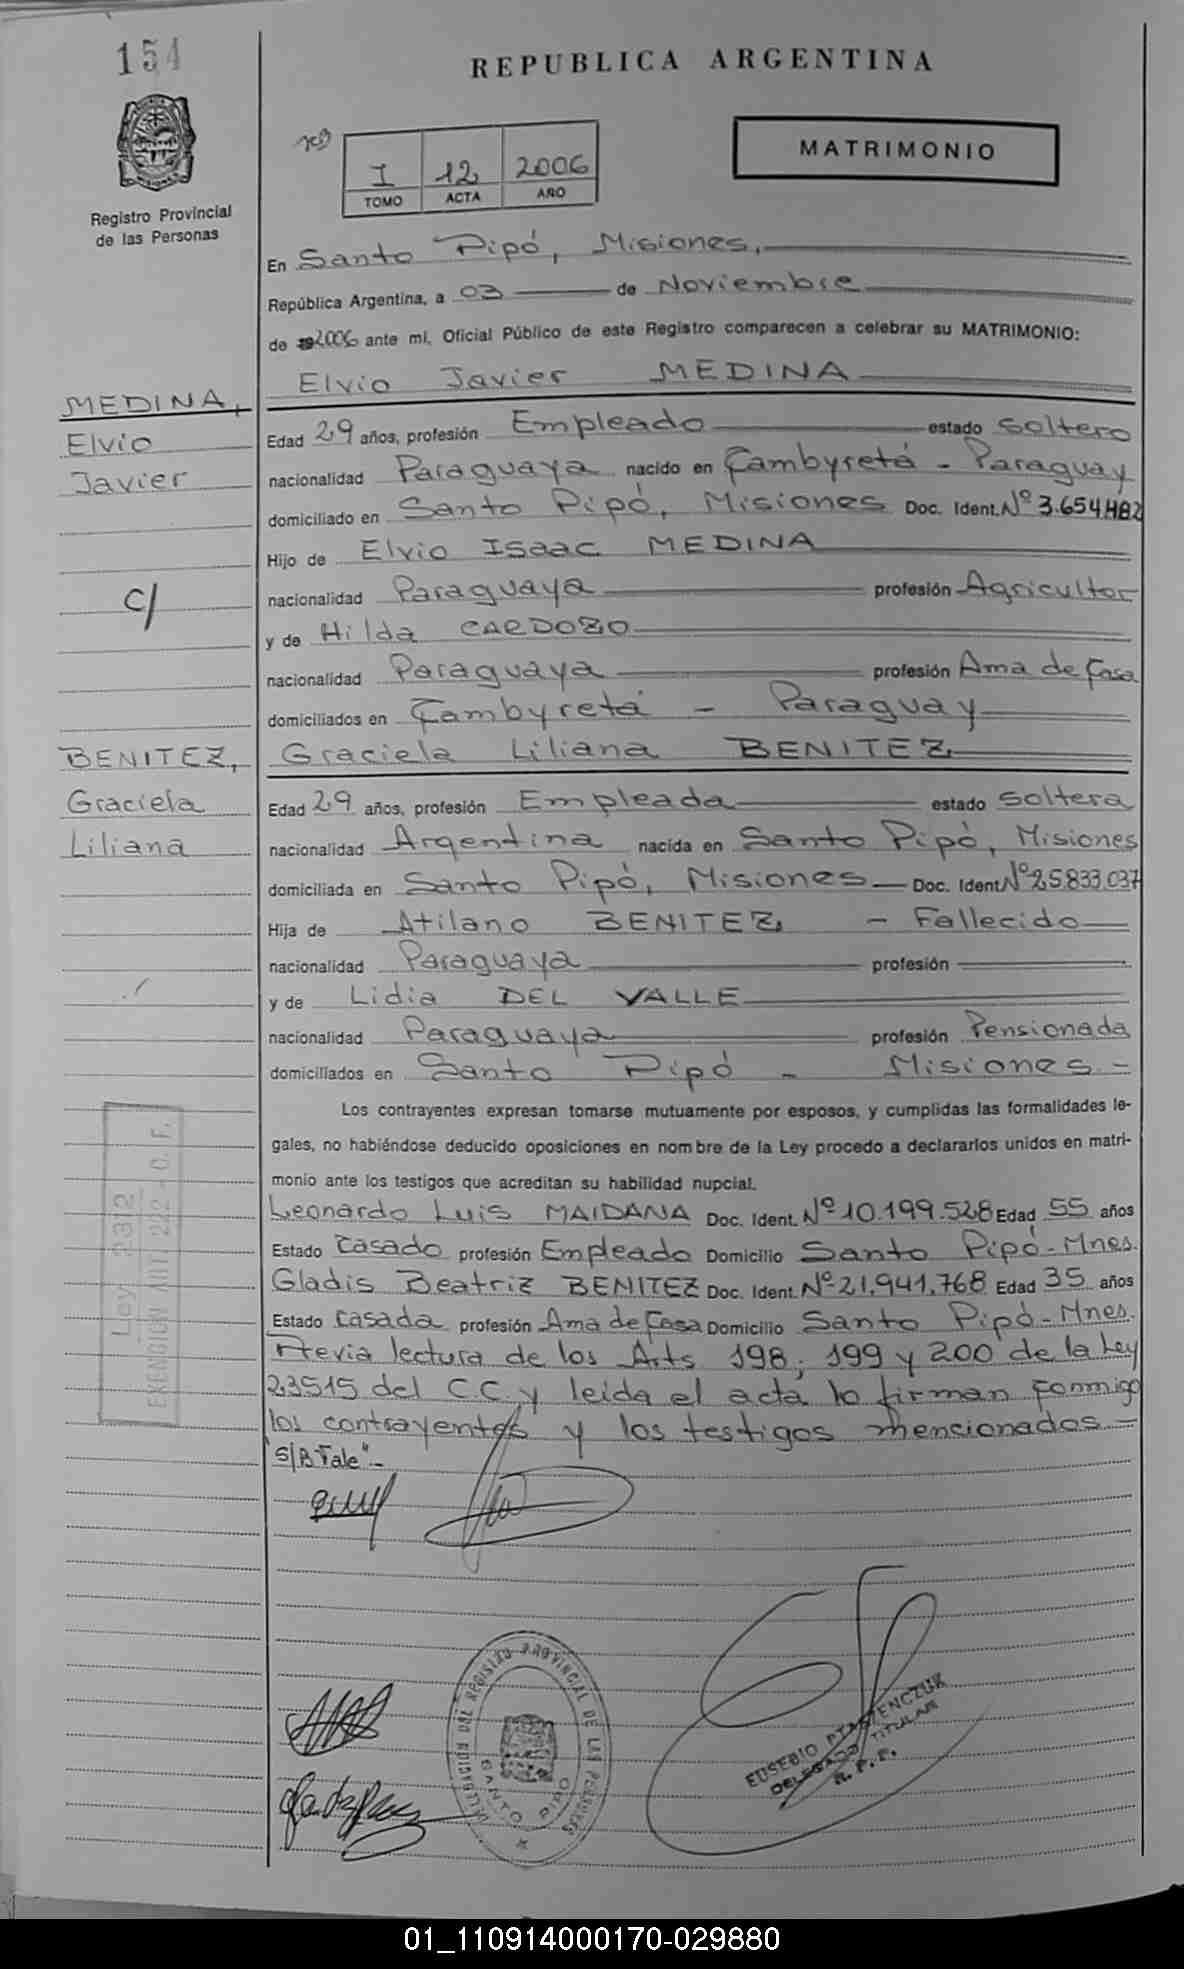 154
REPUBLICA ARGENTINA
I 12 2006
TOMO ACTA AÑO
MATRIMONIO
Registro Provincial
de las Personas
En Santo Pipó, Misiones,
República Argentina, a 03 de Noviembre
de 2006 ante mí, Oficial Público de este Registro comparecen a celebrar su MATRIMONIO:
Elvio Javier MEDINA
MEDINA,
Elvio
Javier
Edad 29 años, profesión Empleado estado soltero
nacionalidad Paraguaya nacido en Cambyretá - Paraguay
domiciliado en Santo Pipó, Misiones Doc. Ident. Nº 3.654.482
Hijo de Elvio Isaac MEDINA
C/
nacionalidad Paraguaya profesión Agricultor
y de Hilda CARDOZO
nacionalidad Paraguaya profesión Ama de Casa
domiciliados en Cambyretá - Paraguay
BENITEZ,
Graciela
Liliana
Graciela Liliana BENITEZ
Edad 29 años, profesión Empleada estado soltera
nacionalidad Argentina nacida en Santo Pipó, Misiones
domiciliada en Santo Pipó, Misiones — Doc. Ident. Nº 25.833.037
Hija de Atilano BENITEZ - Fallecido
nacionalidad Paraguaya profesión
y de Lidia DEL VALLE
nacionalidad Paraguaya profesión Pensionada
domiciliados en Santo Pipó - Misiones -
Los contrayentes expresan tomarse mutuamente por esposos, y cumplidas las formalidades le-
gales, no habiéndose deducido oposiciones en nombre de la Ley procedo a declararlos unidos en matri-
monio ante los testigos que acreditan su habilidad nupcial.
Leonardo Luis MAIDANA Doc. Ident. Nº 10.199.528 Edad 55 años
Estado Casado profesión Empleado Domicilio Santo Pipó - Mnes.
Gladis Beatriz BENITEZ Doc. Ident. Nº 21.941.768 Edad 35 años
Estado Casada profesión Ama de Casa Domicilio Santo Pipó - Mnes.
Previa lectura de los Arts 198, 199 y 200 de la Ley
23515 del C.C. y leida el acta lo firman conmigo
los contrayentes y los testigos mencionados -
"S/B Vale" -
Ley 3312
EXENCION ART. 222 - C. F.
DELEGACION DEL REGISTRO PROVINCIAL DE LAS PERSONAS
SANTO PIPO
EUSEBIO
DELEGADO TITULAR
R. P. P.
01_110914000170-029880